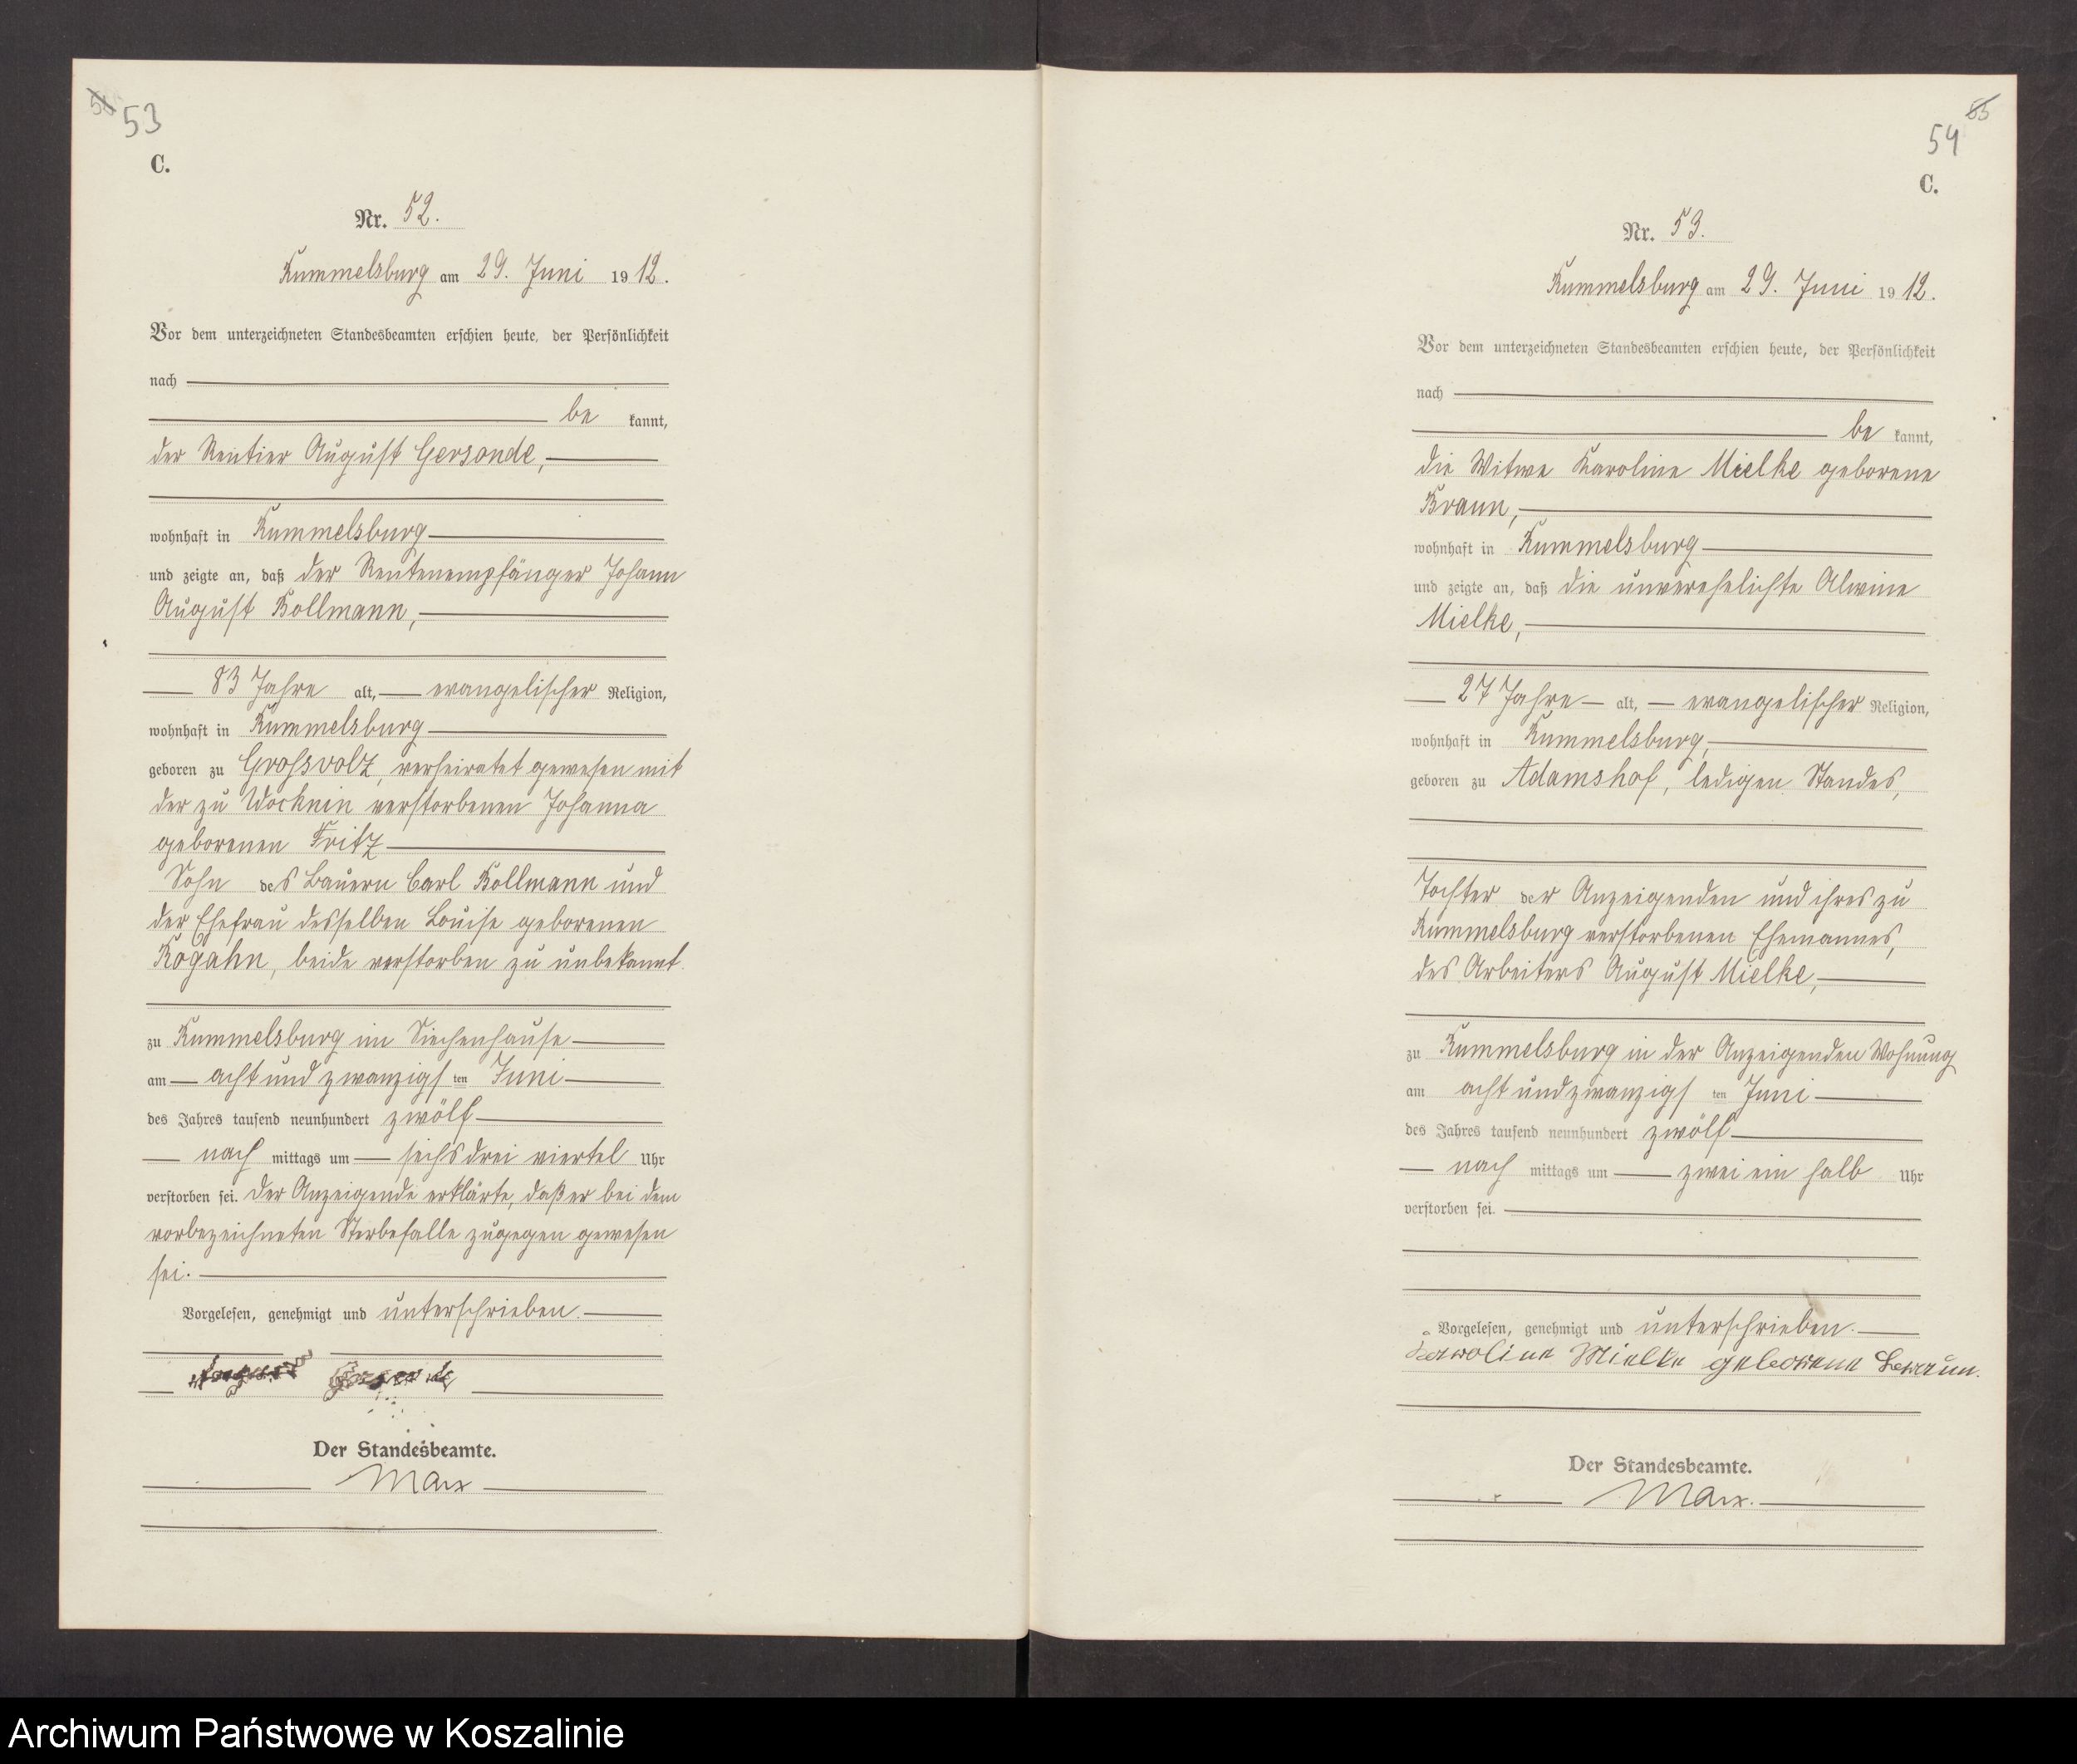 53
C.
Nr. 52.
Rummelsburg am 29. Juni 1912.
Vor dem unterzeichneten Standesbeamten erschien heute, der Persönlichkeit
nach
be kannt,
der Rentier August Gersonde,
wohnhaft in Rummelsburg
und zeigte an, daß der Rentenempfänger Johann
August Kollmann,
83 Jahre alt, evangelischer Religion,
wohnhaft in Rummelsburg
geboren zu Grossvolz, verheiratet gewesen mit
der zu Wocknin verstorbenen Johanna
geborenen Fritz
Sohn des Bauern Carl Kollmann und
der Ehefrau desselben Louise geborenen
Rogahn, beide verstorben zu unbekannt.
zu Rummelsburg im Siechenhause
am acht und zwanzigs ten Juni
des Jahres tausend neunhundert zwölf
nach mittags um sechs drei viertel Uhr
verstorben sei. Der Anzeigende erklärte, daß er bei dem
vorbezeichneten Sterbefalle zugegen gewesen
sei.
Vorgelesen, genehmigt und unterschrieben.
August Gersonde
Der Standesbeamte.
Marx
55
54
C.
Nr. 53.
Rummelsburg am 29. Juni 1912.
Vor dem unterzeichneten Standesbeamten erschien heute, der Persönlichkeit
nach
be kannt,
die Witwe Karoline Mielke geborene
Braun,
wohnhaft in Rummelsburg
und zeigte an, daß die unverehelichte Alwine
Mielke,
27 Jahre alt, evangelischer Religion,
wohnhaft in Rummelsburg,
geboren zu Adamshof, ledigen Standes,
Tochter der Anzeigenden und ihres zu
Rummelsburg verstorbenen Ehemannes,
des Arbeiters August Mielke,
zu Rummelsburg in der Anzeigenden Wohnung
am acht und zwanzigs ten Juni
des Jahres tausend neunhundert zwölf
nach mittags um zwei ein halb Uhr
verstorben sei.
Vorgelesen, genehmigt und unterschrieben.
Karoline Mielke geborene Braun.
Der Standesbeamte.
Marx.
Archiwum Państwowe w Koszalinie